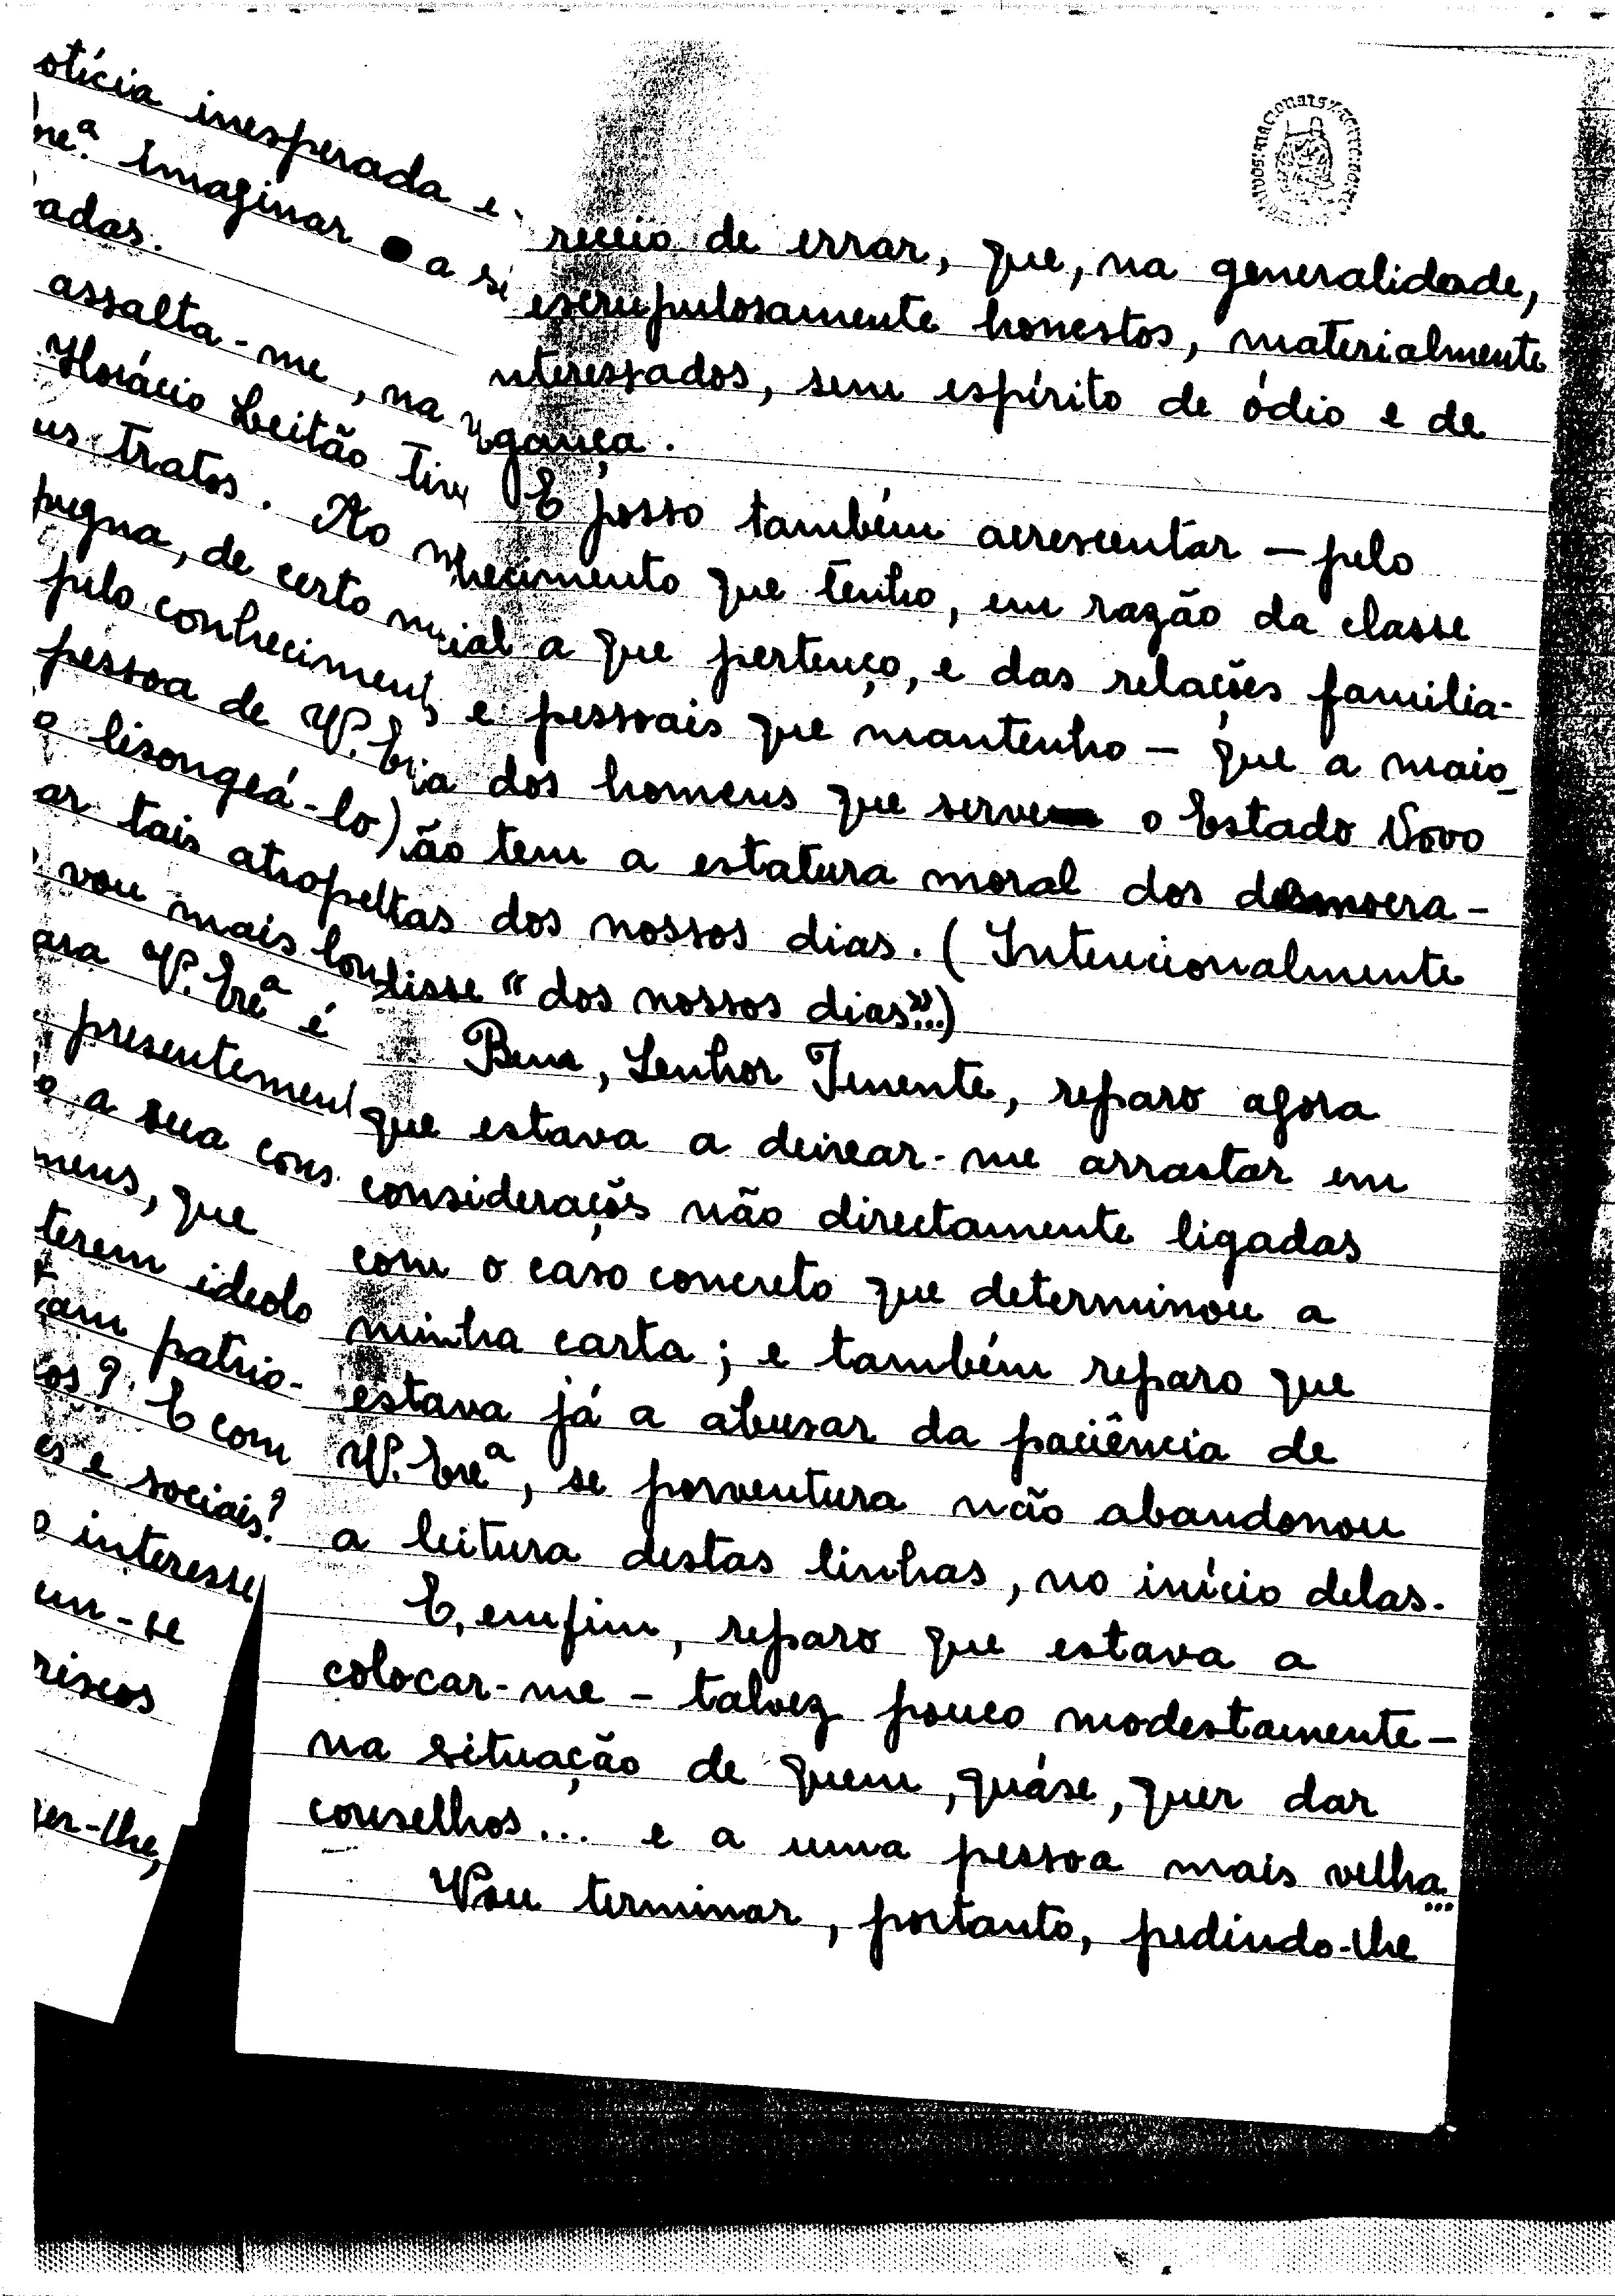 otícia inesperada e
ne.ª Imaginar a si
adas.
assalta-me, na
Horácio Leitão tive
us tratos. Ao
pugna, de certo
pelo conheciment
pessoa de V. Ex
lisongeá-lo)
ar tais atropel
vou mais lon
ara V. Exª é
presentement
a sua cons
meus, que
terem ideolo
am patrio-
os? E com
es e sociais?
o interesse
em-se
riscos
er-lhe,
receio de errar, que, na generalidade,
escrupulosamente honestos, materialmente
nteressados, sem espírito de ódio e de
gança.
E posso também acrescentar — pelo
hecimento que tenho, em razão da classe
cial a que pertenço, e das relações familia-
s e pessoais que mantenho — que a maio-
ia dos homens que serve o Estado Novo
ão tem a estatura moral dos democra-
tas dos nossos dias. (Intencionalmente
disse "dos nossos dias"...)
Bem, Senhor Tenente, reparo agora
que estava a deixar-me arrastar em
considerações não directamente ligadas
com o caso concreto que determinou a
minha carta; e também reparo que
estava já a abusar da paciência de
V. Exª, se porventura não abandonou
a leitura destas linhas, no início delas.
E, emfim, reparo que estava a
colocar-me — talvez pouco modestamente —
na situação de quem, quáse, quer dar
conselhos... e a uma pessoa mais velha...
Vou terminar, portanto, pedindo-lhe